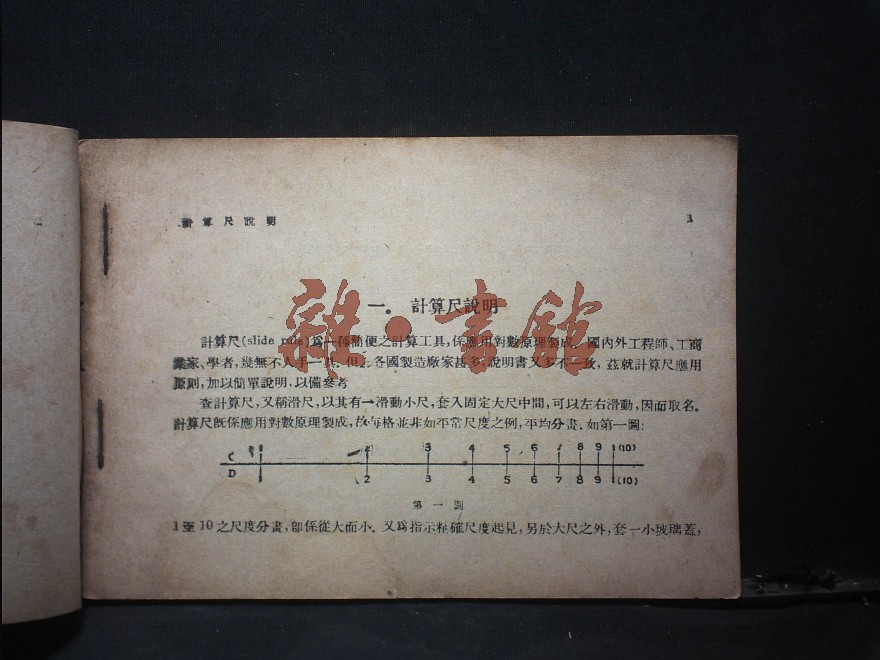 計算尺說明 1
一. 計算尺說明
雜·書館
計算尺(slide rule)爲一種簡便之計算工具,係應用對數原理製成. 國內外工程師、工商
業家、學者,幾無不人手一具. 但各國製造廠家甚多,說明書又多不一致, 茲就計算尺應用
原則,加以簡單說明,以備參考
查計算尺,又稱滑尺,以其有一滑動小尺,套入固定大尺中間,可以左右滑動,因而取名.
計算尺旣係應用對數原理製成,故每格並非如平常尺度之例,平均分畫. 如第一圖:
C 1 2 3 4 5 6 7 8 9 1(10)
D 2 3 4 5 6 7 8 9 1(10)
第一圖
1至10之尺度分畫,卽係從大而小. 又爲指示精確尺度起見,另於大尺之外,套一小玻璃蓋,